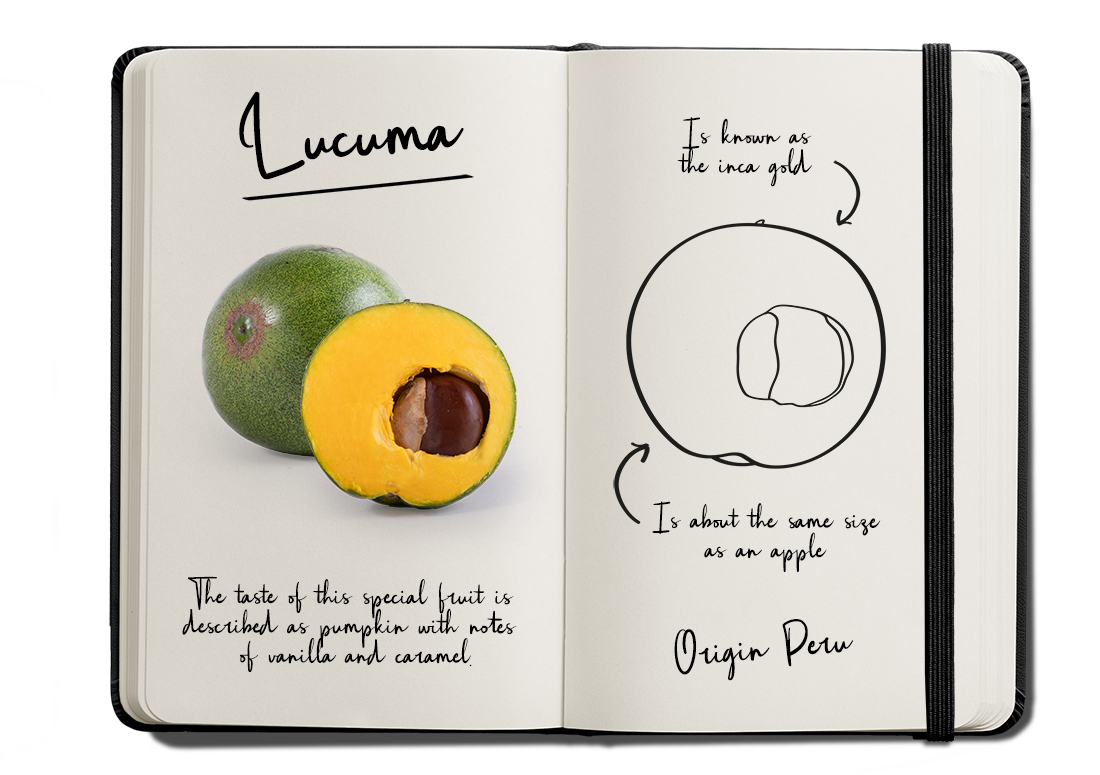 Lucuma
The taste of this special fruit is
described as pumpkin with notes
of vanilla and caramel.
Is known as
the inca gold
Is about the same size
as an apple
Origin Peru